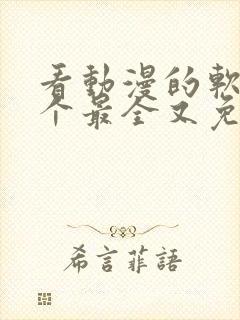 看動漫的軟
个最全又免
希言菲語